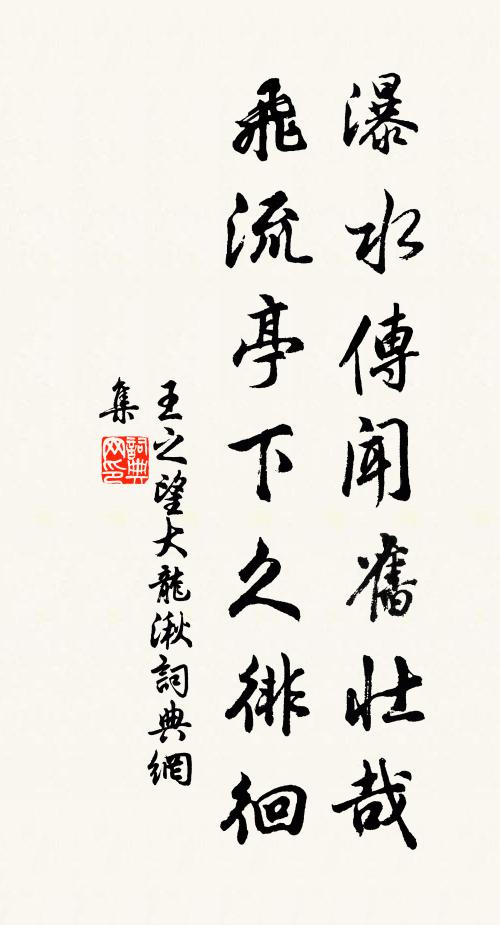 瀑水傳聞舊壯哉
飛流亭下久徘徊
王之望大龍湫詞典網
集
詞典
网印